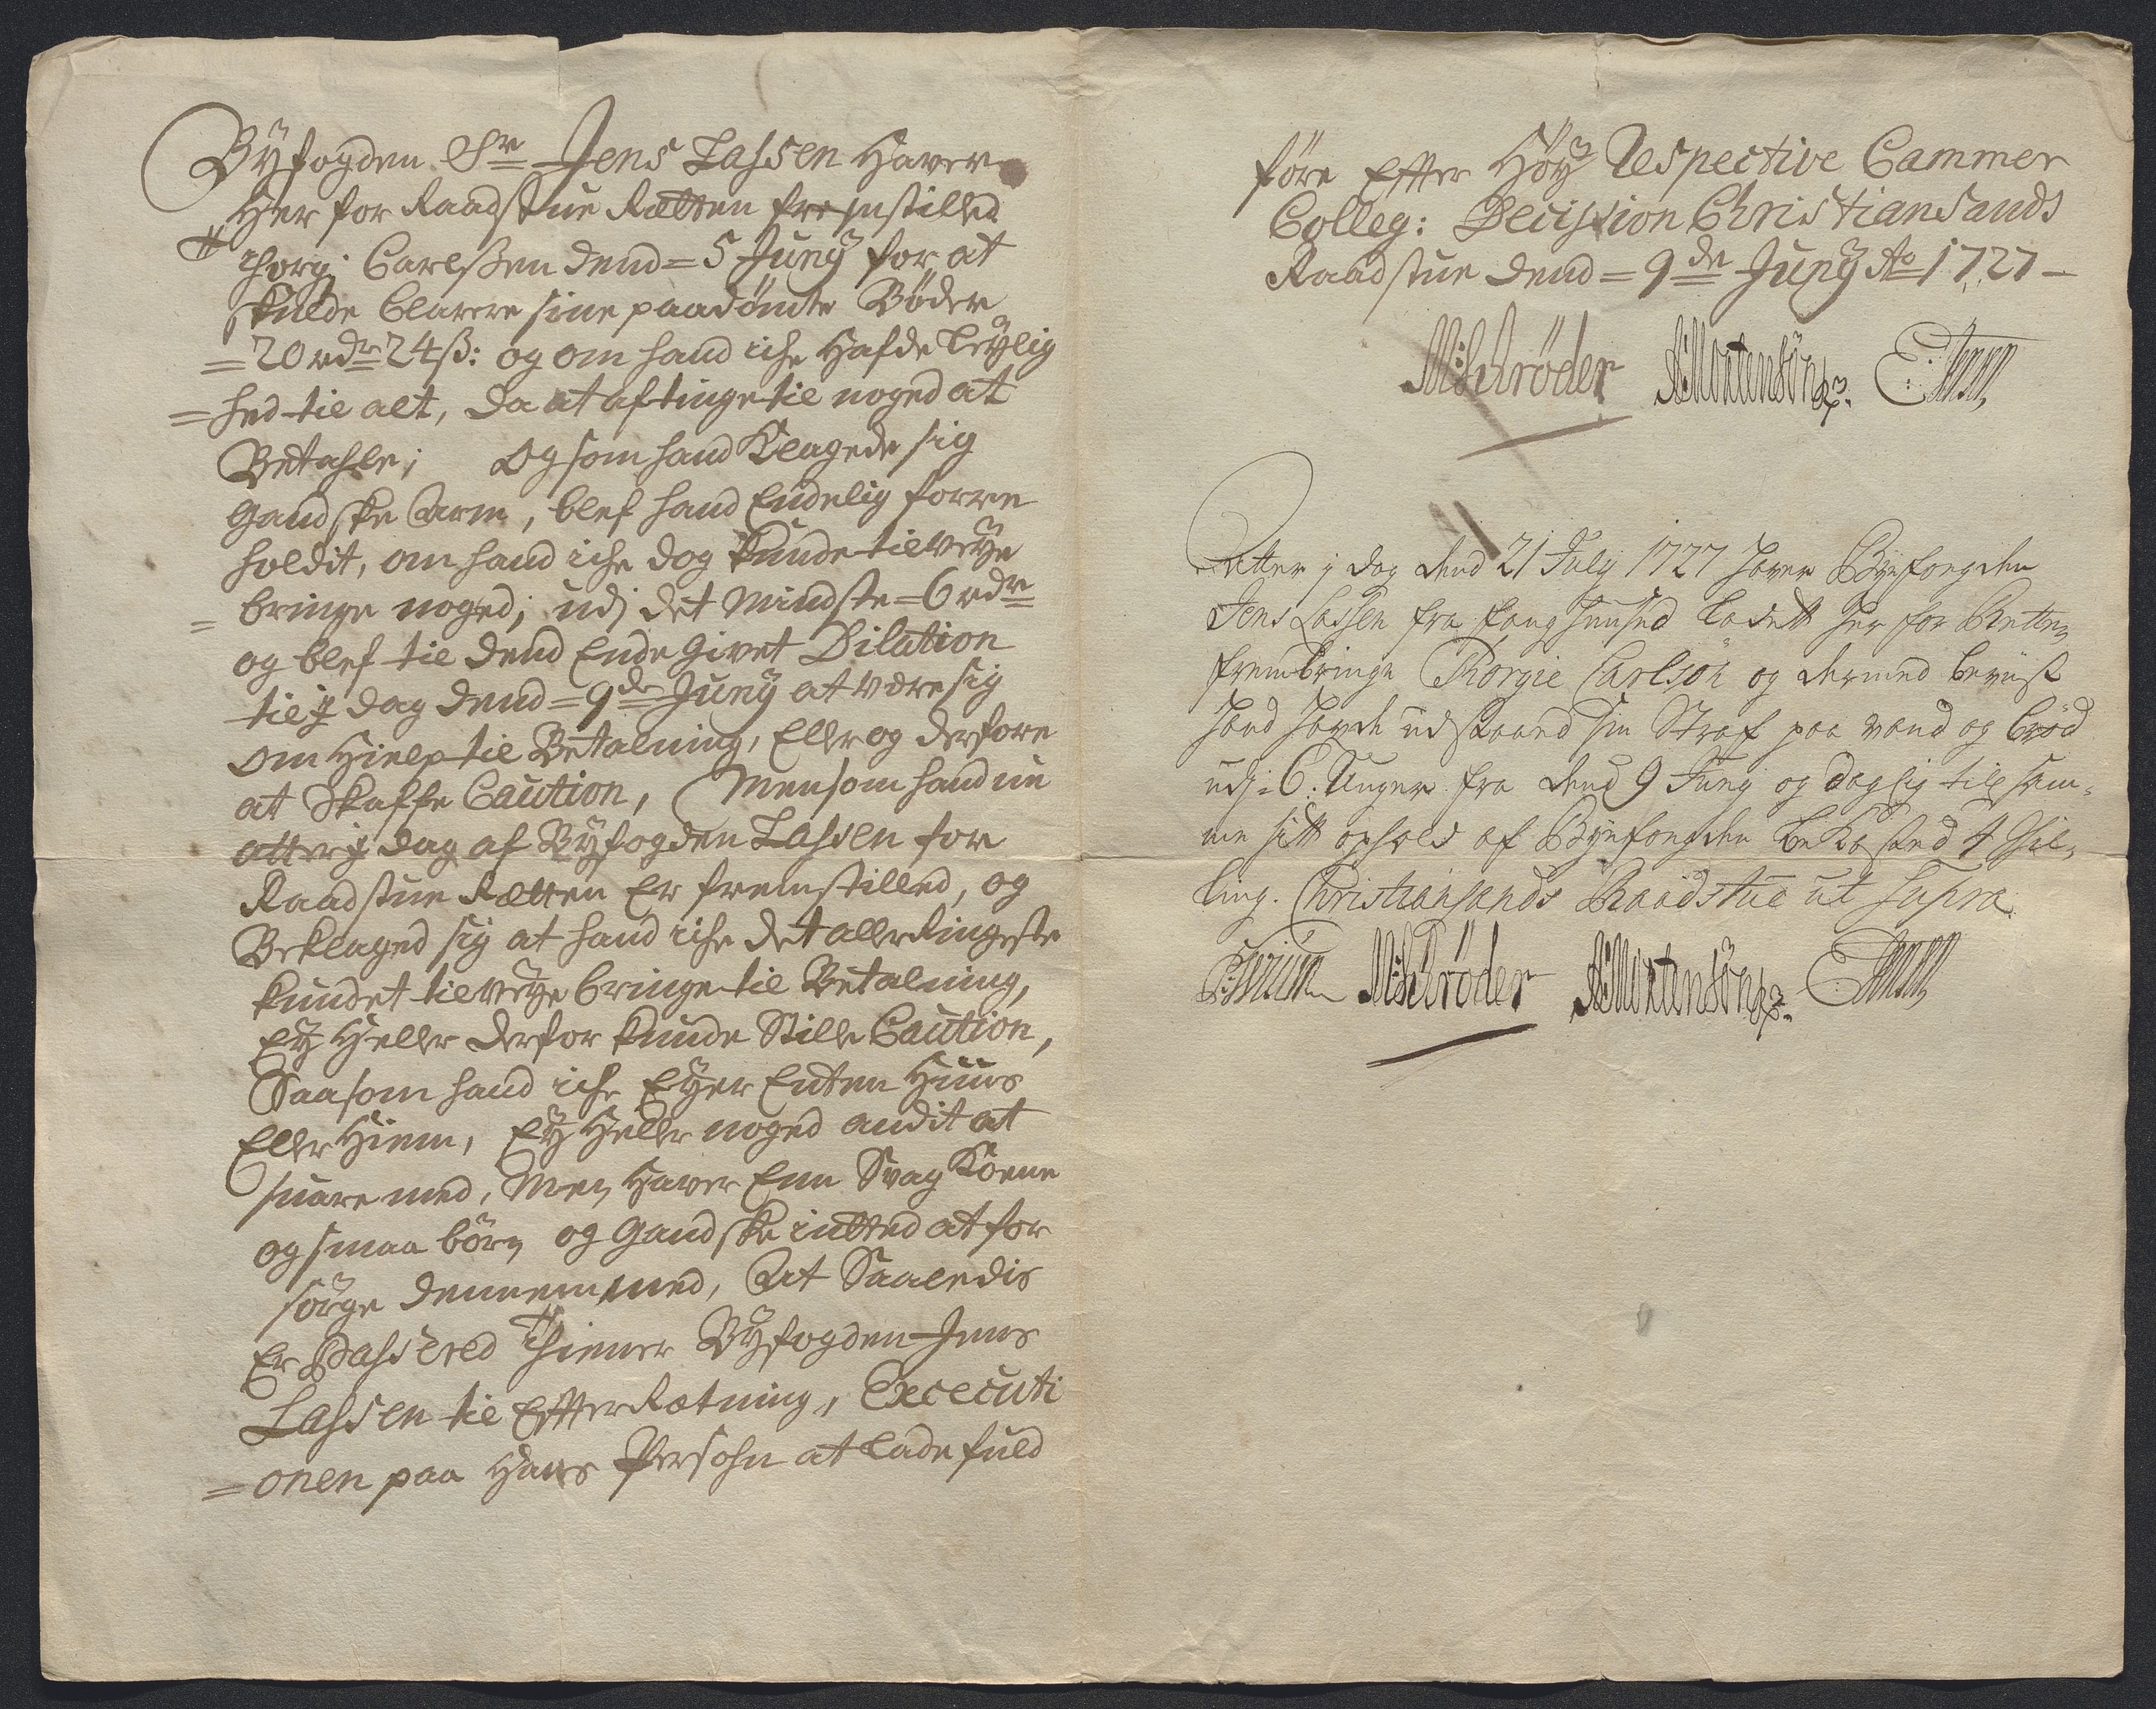 Byfogden Sr Jens Lassen Haver
Her for Raadstue Rætten fremstilled
Thorg: Carlsen dend = 5 Juny for at
skulde Clarere sine paadömte Böder
= 20 rdr 24 ß: og om hand iche Hafde Leylig
= hed til alt, da at aftinge til noged at
Betahle; Og som hand Klagede sig
Gandske Arm, blef hand Endelig forre
holdit, om hand iche dog kunde tilveye
= bringe noged; udj det Mindste = 6 rdr
og blef til dend Ende Givet Dilation
til j dag dend = 9de Juny at være sig
om Hielp til Betalning, Eller og derfore
at Skaffe Caution, Men som hand nu
atter j dag af Byfogden Lassen for
Raadstue Rætten Er fremstilled, og
Beklaged sig at hand iche det allerRingeste
kundet tilveye bringe til Betalning,
Ey Heller derfor kunde Stille Caution,
Saasom hand iche Eyer Enten Huus
Eller Hiem, Ey Heller noged andit at
svare med, Men Haver Een Svag Kone
og smaa börn og Gandske intted at for
sörge dennem med, At Saaledis
Er Passered Thiener Byfogden Jens
Lassen til Efterretning, Executi
= onen paa Hans Persohn at lade fuld
före Efter Höy Respective Cammer
Colleg: Decission Christiansands
Raadstue dend = 9de Juny Ao 1727 -
M:Schröder A:Mortensön E: Jensen
Atter j dag dend 21 July 1727 haver Byefougden
Jens Lassen fra fangehuused ladett her for Retten
frembringe Thorgie Carlsön og dermed beviist
hand hafde udstaaend sin Straf paa vand og bröd
udj: 6: Unger fra dend 9 Juny og daglig til sam-
me sitt ophold af Byefougden bekosted 4 skil-
ling. Christiansands Raadstue ut supra.
M:Schröder A:Mortensön E:Jensen